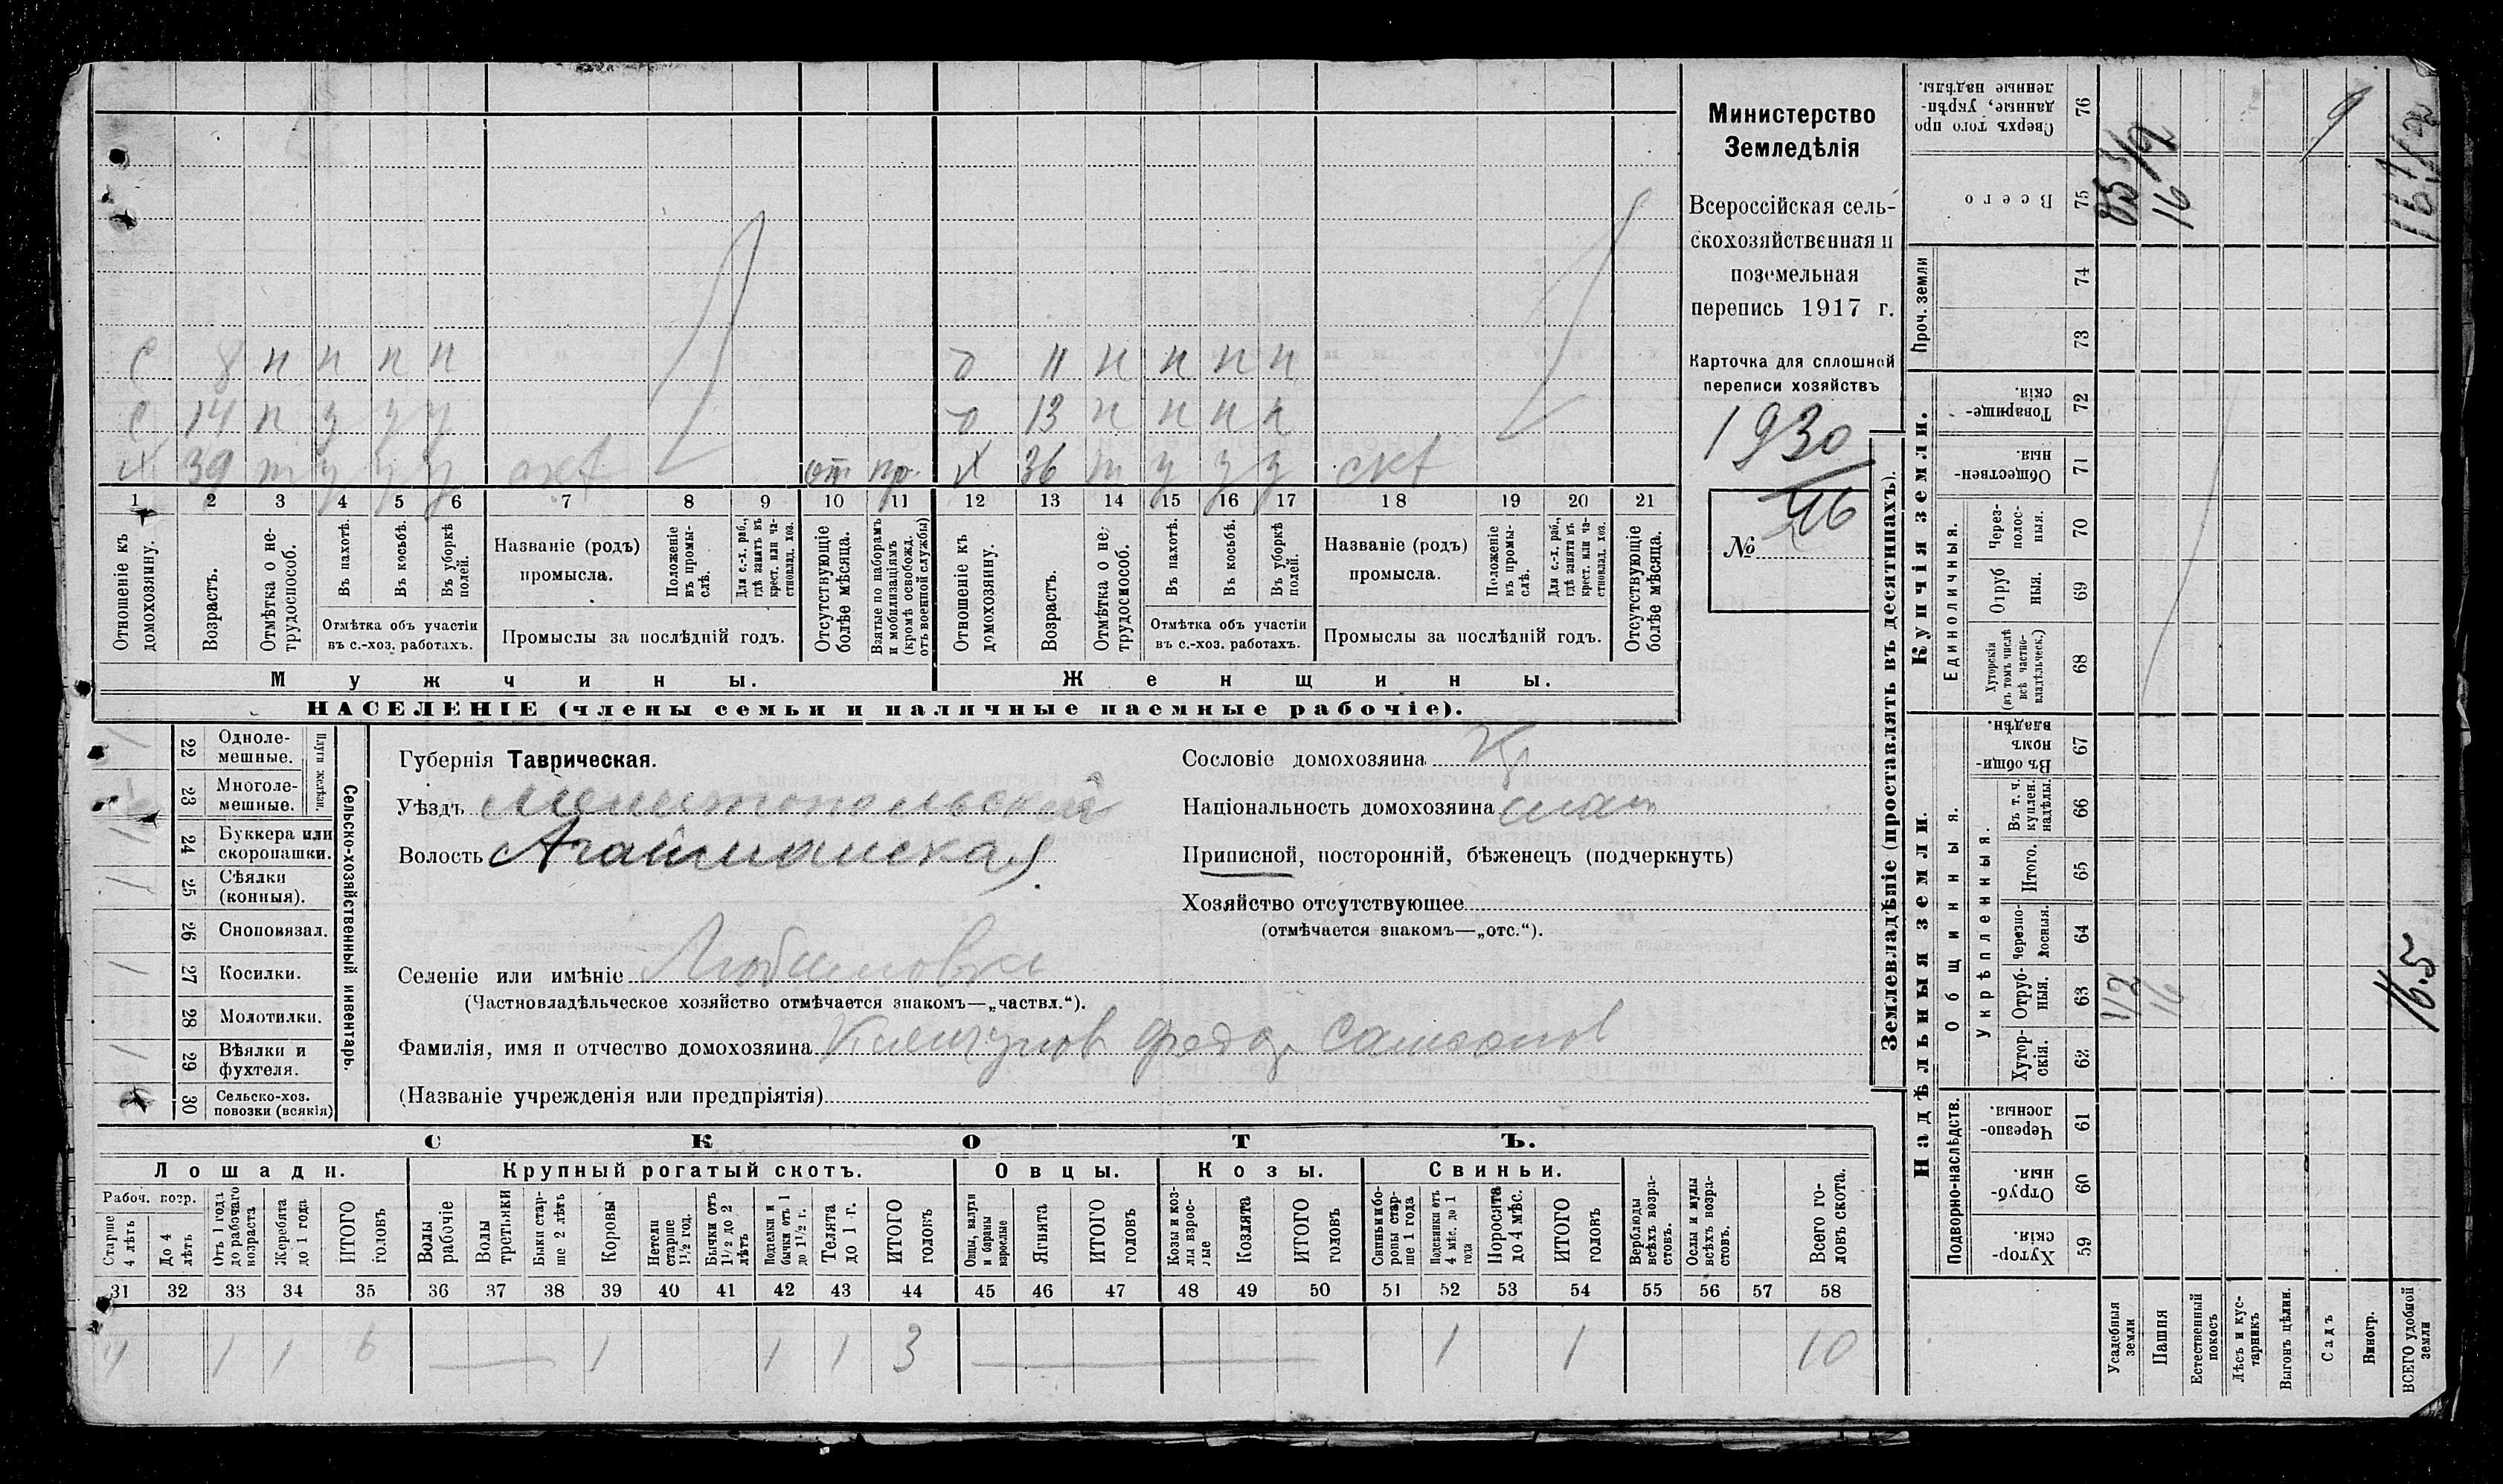 Министерство
Земледѣлія
Всероссійская сель-
скохозяйственная и
поземельная
перепись 1917 г.
Карточка для сплошной
переписи хозяйствъ
1930
46
№
с 8 н н н н
о 11 н н н н
с 14 п у у у
о 13 н н н н
х 39 т у у у скт от пр
х 36 т у у у скт
1 2 3 4 5 6 7 8 9 10 11 12 13 14 15 16 17 18 19 20 21
Отношеніе къ домохозяину.
Возрастъ.
Отмѣтка о не-трудоспособ.
Въ пахотѣ.
Въ косьбѣ.
Въ уборкѣ полей.
Отмѣтка объ участіи
въ с.-хоз. работахъ.
Названіе (родъ)
промысла.
Положеніе въ промы-слѣ.
Для с.-х. раб., гдѣ занятъ въ крест. или ча-стновлад. хоз.
Промыслы за послѣдній годъ.
Отсутствующіе болѣе мѣсяца.
Взятые по наборамъ и мобилизаціямъ (кромѣ освобожд. отъ военной службы)
Отношеніе къ домохозяину.
Возрастъ.
Отмѣтка о не-трудоспособ.
Въ пахотѣ.
Въ косьбѣ.
Въ уборкѣ полей.
Отмѣтка объ участіи
въ с.-хоз. работахъ.
Названіе (родъ)
промысла.
Положеніе въ промы-слѣ.
Для с.-х. раб., гдѣ занята въ крест. или ча-стновлад. хоз.
Промыслы за послѣдній годъ.
Отсутствующіе болѣе мѣсяца.
Мужчины.
Женщины.
НАСЕЛЕНІЕ (члены семьи и наличные наемные рабочіе).
Сельско-хозяйственный инвентарь.
Плуги желѣзн.
1 22 Одноле-мешные.
23 Многоле-мешные.
1 24 Буккера или скоропашки.
1 25 Сѣялки (конныя).
26 Сноповязал.
1 27 Косилки.
28 Молотилки.
1 29 Вѣялки и фухтеля.
30 Сельско-хоз. повозки (всякія)
Губернія Таврическая.
Уѣздъ Мелитопольскій
Волость Агайманская
Селеніе или имѣніе Любимовка
(Частновладѣльческое хозяйство отмѣчается знакомъ—„частвл.“).
Фамилія, имя и отчество домохозяина Федор Самсонов
(Названіе учрежденія или предпріятія)
Сословіе домохозяина Кр
Національность домохозяина
Приписной, посторонній, бѣженецъ (подчеркнуть)
Хозяйство отсутствующее
(отмѣчается знакомъ—„отс.“).
СКОТЪ.
Лошади.
Крупный рогатый скотъ.
Овцы.
Козы.
Свиньи.
Рабоч. возр.
Старше 4 лѣтъ
До 4 лѣтъ
Отъ 1 года до рабочаго возраста
Жеребята до 1 года
ИТОГО головъ
Волы рабочіе
Волы третьяки
Быки стар-ше 2 лѣтъ
Коровы
Нетели старше 1½ год.
Бычки отъ 1½ до 2 лѣтъ
Подтелки и бычки отъ 1 до 1½ г.
Телята до 1 г.
ИТОГО головъ
Овцы, валухи и бараны взрослые
Ягнята
ИТОГО головъ
Козы и коз-лы взрос-лые
Козлята
ИТОГО головъ
Свиньи и бо-ровы стар-ше 1 года
Подсвинки отъ 4 мѣс. до 1 года
Поросята до 4 мѣс.
ИТОГО головъ
Верблюды всѣхъ возра-стовъ.
Ослы и мулы всѣхъ возра-стовъ.
Всего го-ловъ скота.
31 32 33 34 35 36 37 38 39 40 41 42 43 44 45 46 47 48 49 50 51 52 53 54 55 56 57 58
4 1 1 6 1 1 1 3 1 1 10
Землевладѣніе (проставлять въ десятинахъ).
Надѣльныя земли.
Купчія земли.
Проч. земли
Подворно-наслѣдств.
Общинныя.
Укрѣпленныя.
Единоличныя.
Хутор-скія. 59
Отруб-ныя. 60
Черезпо-лосныя. 61
Хутор-скія. 62
Отруб-ныя. 63
Черезпо-лосныя. 64
Итого. 65
Въ т. ч. куплен. надѣлы. 66
Въ общи-номъ владѣн. 67
Хуторскія (въ томъ числѣ всѣ частно-владѣльческ.) 68
Отруб ныя. 69
Через-полос-ныя. 70
Обществен-ныя. 71
Товарище-скія. 72
73
74
Всего 75
Сверхъ того про данные, укрѣп-ленные надѣлы. 76
Усадебныя земли
Пашня
Естественный покосъ
Лѣсъ и кус-тарникъ
Выгонъ цѣлин.
Садъ
Виногр.
ВСЕГО удобной земли
1/2
16
16.5
16